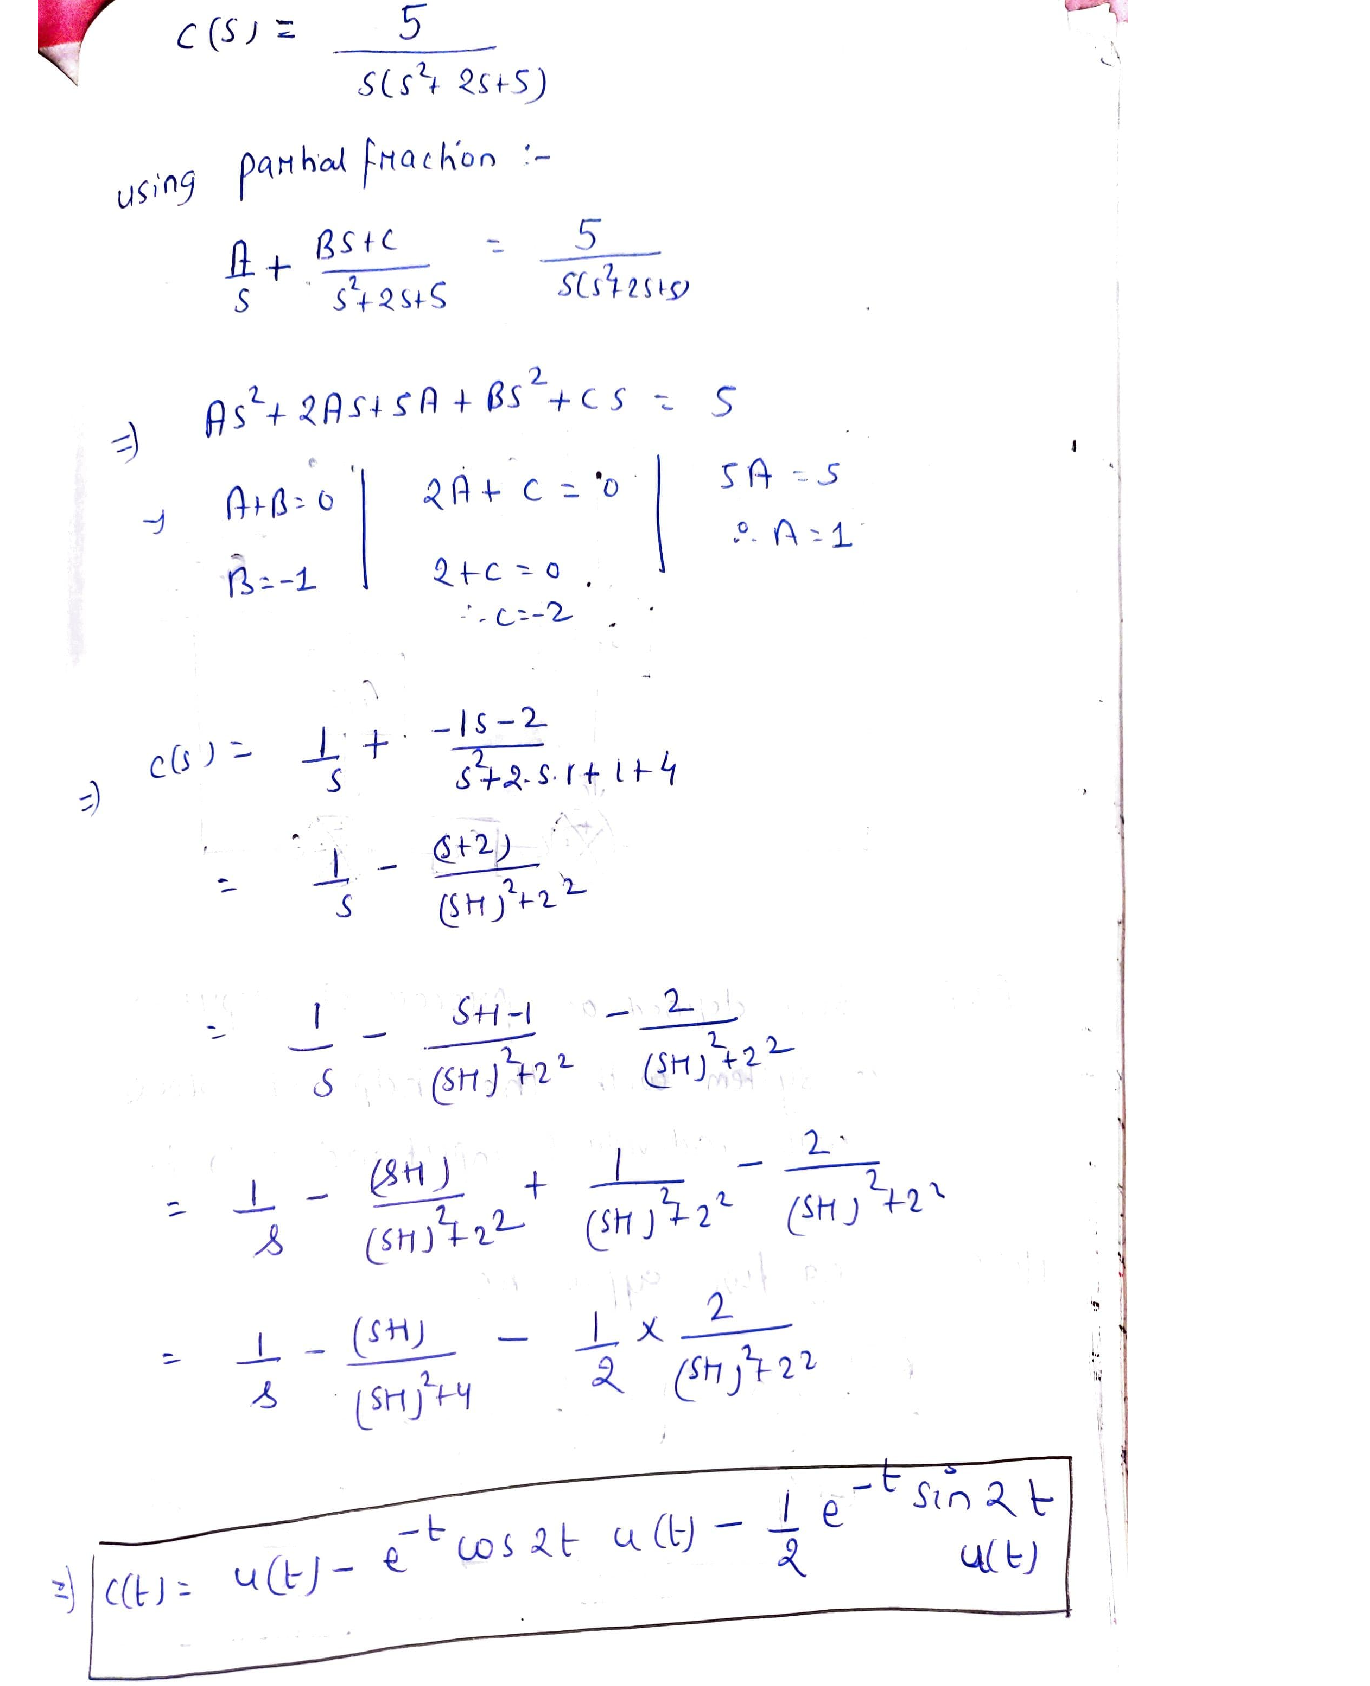 C(S) = 5 / S(S²+2S+5)
using partial fraction :-
A/S + (BS+C)/(S²+2S+5) = 5/(S(S²+2S+5))
⇒ AS²+2AS+5A+BS²+CS = 5
→ A+B=0 | 2A+C=0 | 5A=5
B=-1 | 2+C=0 | ∴ A=1
∴ C=-2
⇒ C(S) = 1/S + (-1S-2)/(S²+2.S.1+1+4)
= 1/S - (S+2)/((S+1)²+2²)
= 1/S - (S+1-1)/((S+1)²+2²) - 2/((S+1)²+2²)
= 1/S - (S+1)/((S+1)²+2²) + 1/((S+1)²+2²) - 2/((S+1)²+2²)
= 1/S - (S+1)/((S+1)²+4) - 1/2 × 2/((S+1)²+2²)
⇒ C(t) = u(t) - e^-t cos2t u(t) - 1/2 e^-t sin2t u(t)